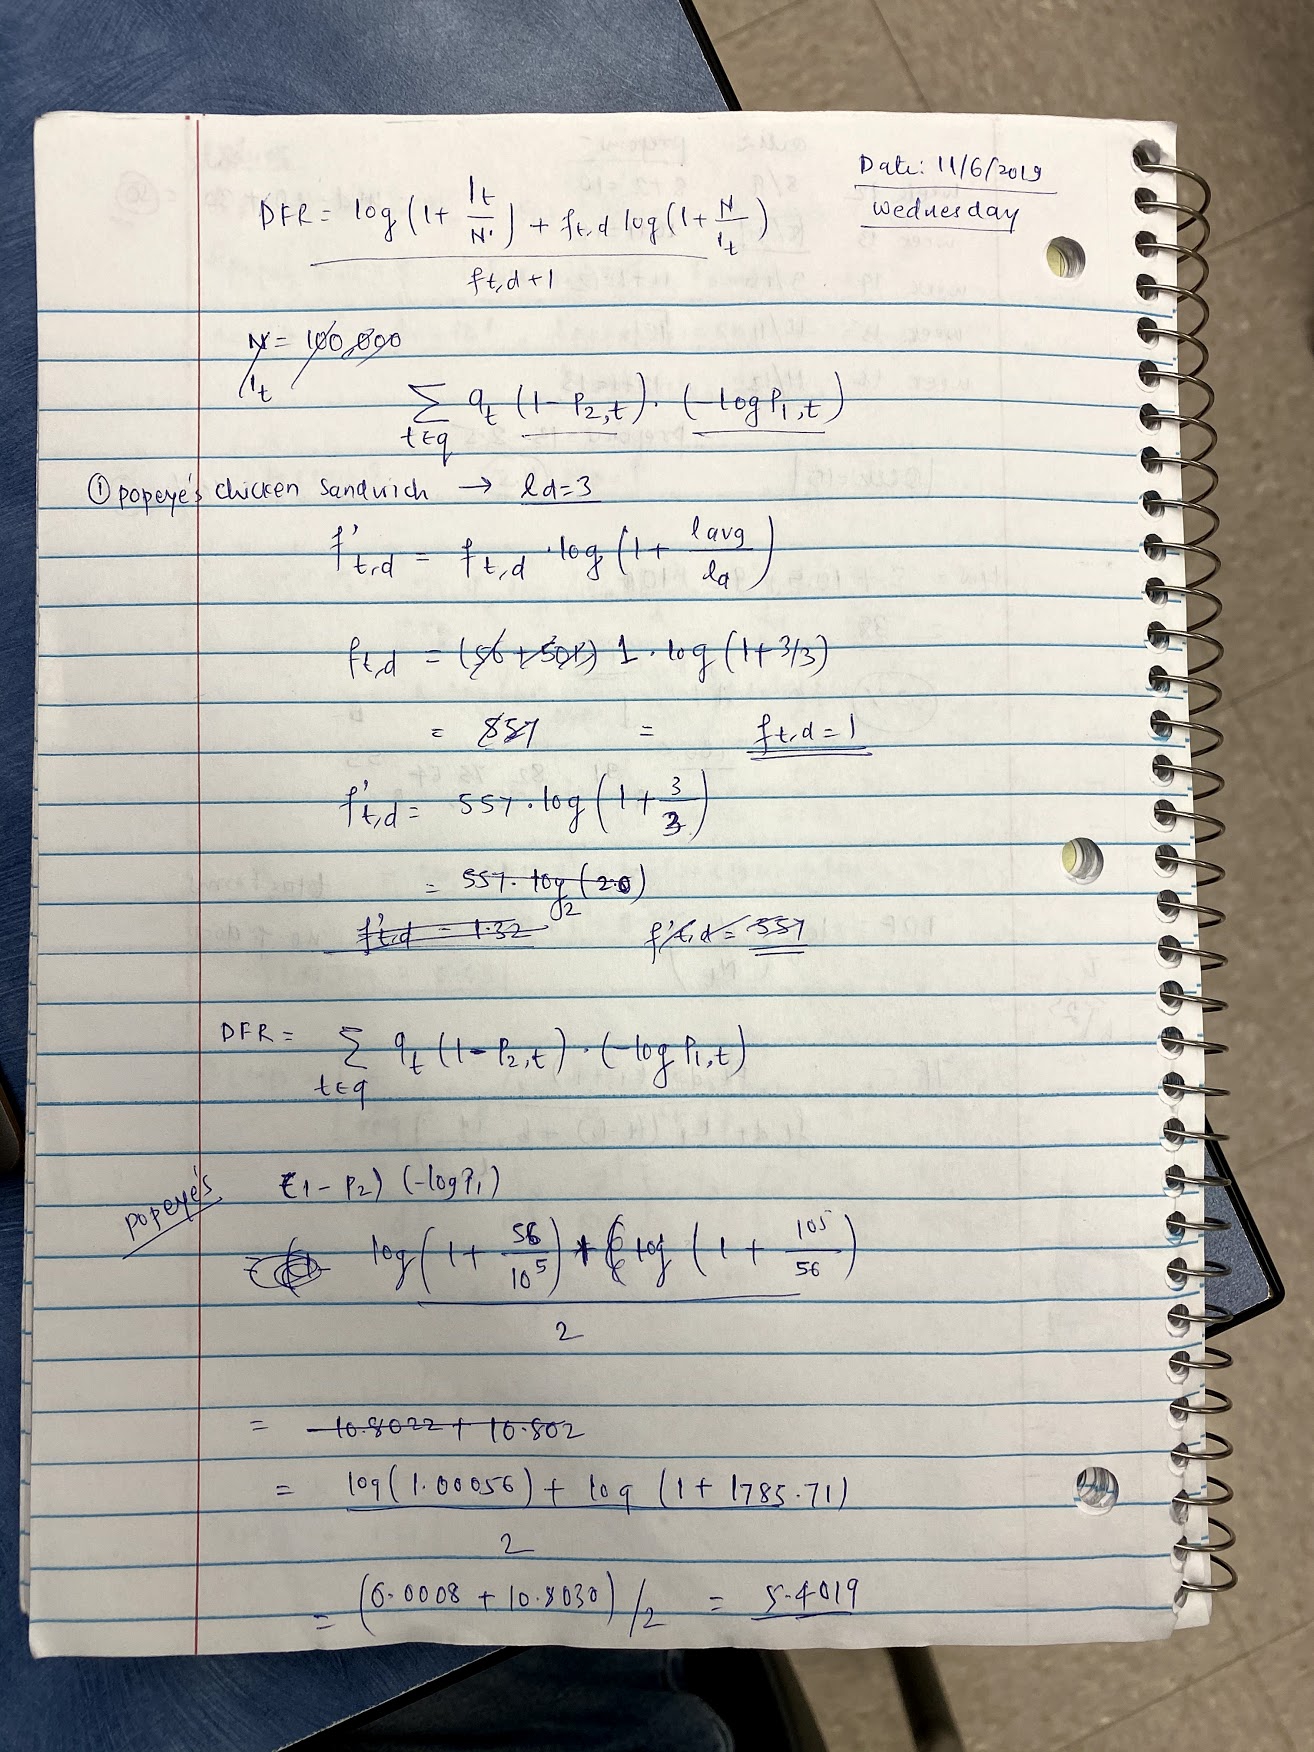 Date: 11/6/2019
Wednesday
DFR = log(1+ lt/N) + ft,d log(1+ N/lt)
ft,d+1
N = 100,000
lt
∑ qt (1-P2,t)·(-logP1,t)
t∈q
① popeye's chicken sandwich → ld=3
f't,d = ft,d · log(1+ lavg/ld)
ft,d = (56+501) 1 · log(1+3/3)
= 557 = ft,d = 1
f't,d = 557 · log(1+ 3/3)
= 557 · log2(2.0)
f't,d = 1.32 f't,d = 557
DFR = ∑ qt (1-P2,t)·(-logP1,t)
t∈q
popeye's (1-P2) (-logP1)
log(1+ 56/10^5) + log(1+ 10^5/56)
2
= -10.8022 + 10.802
= log(1.00056) + log(1+1785.71)
2
= (0.0008 + 10.8030)/2 = 5.4019